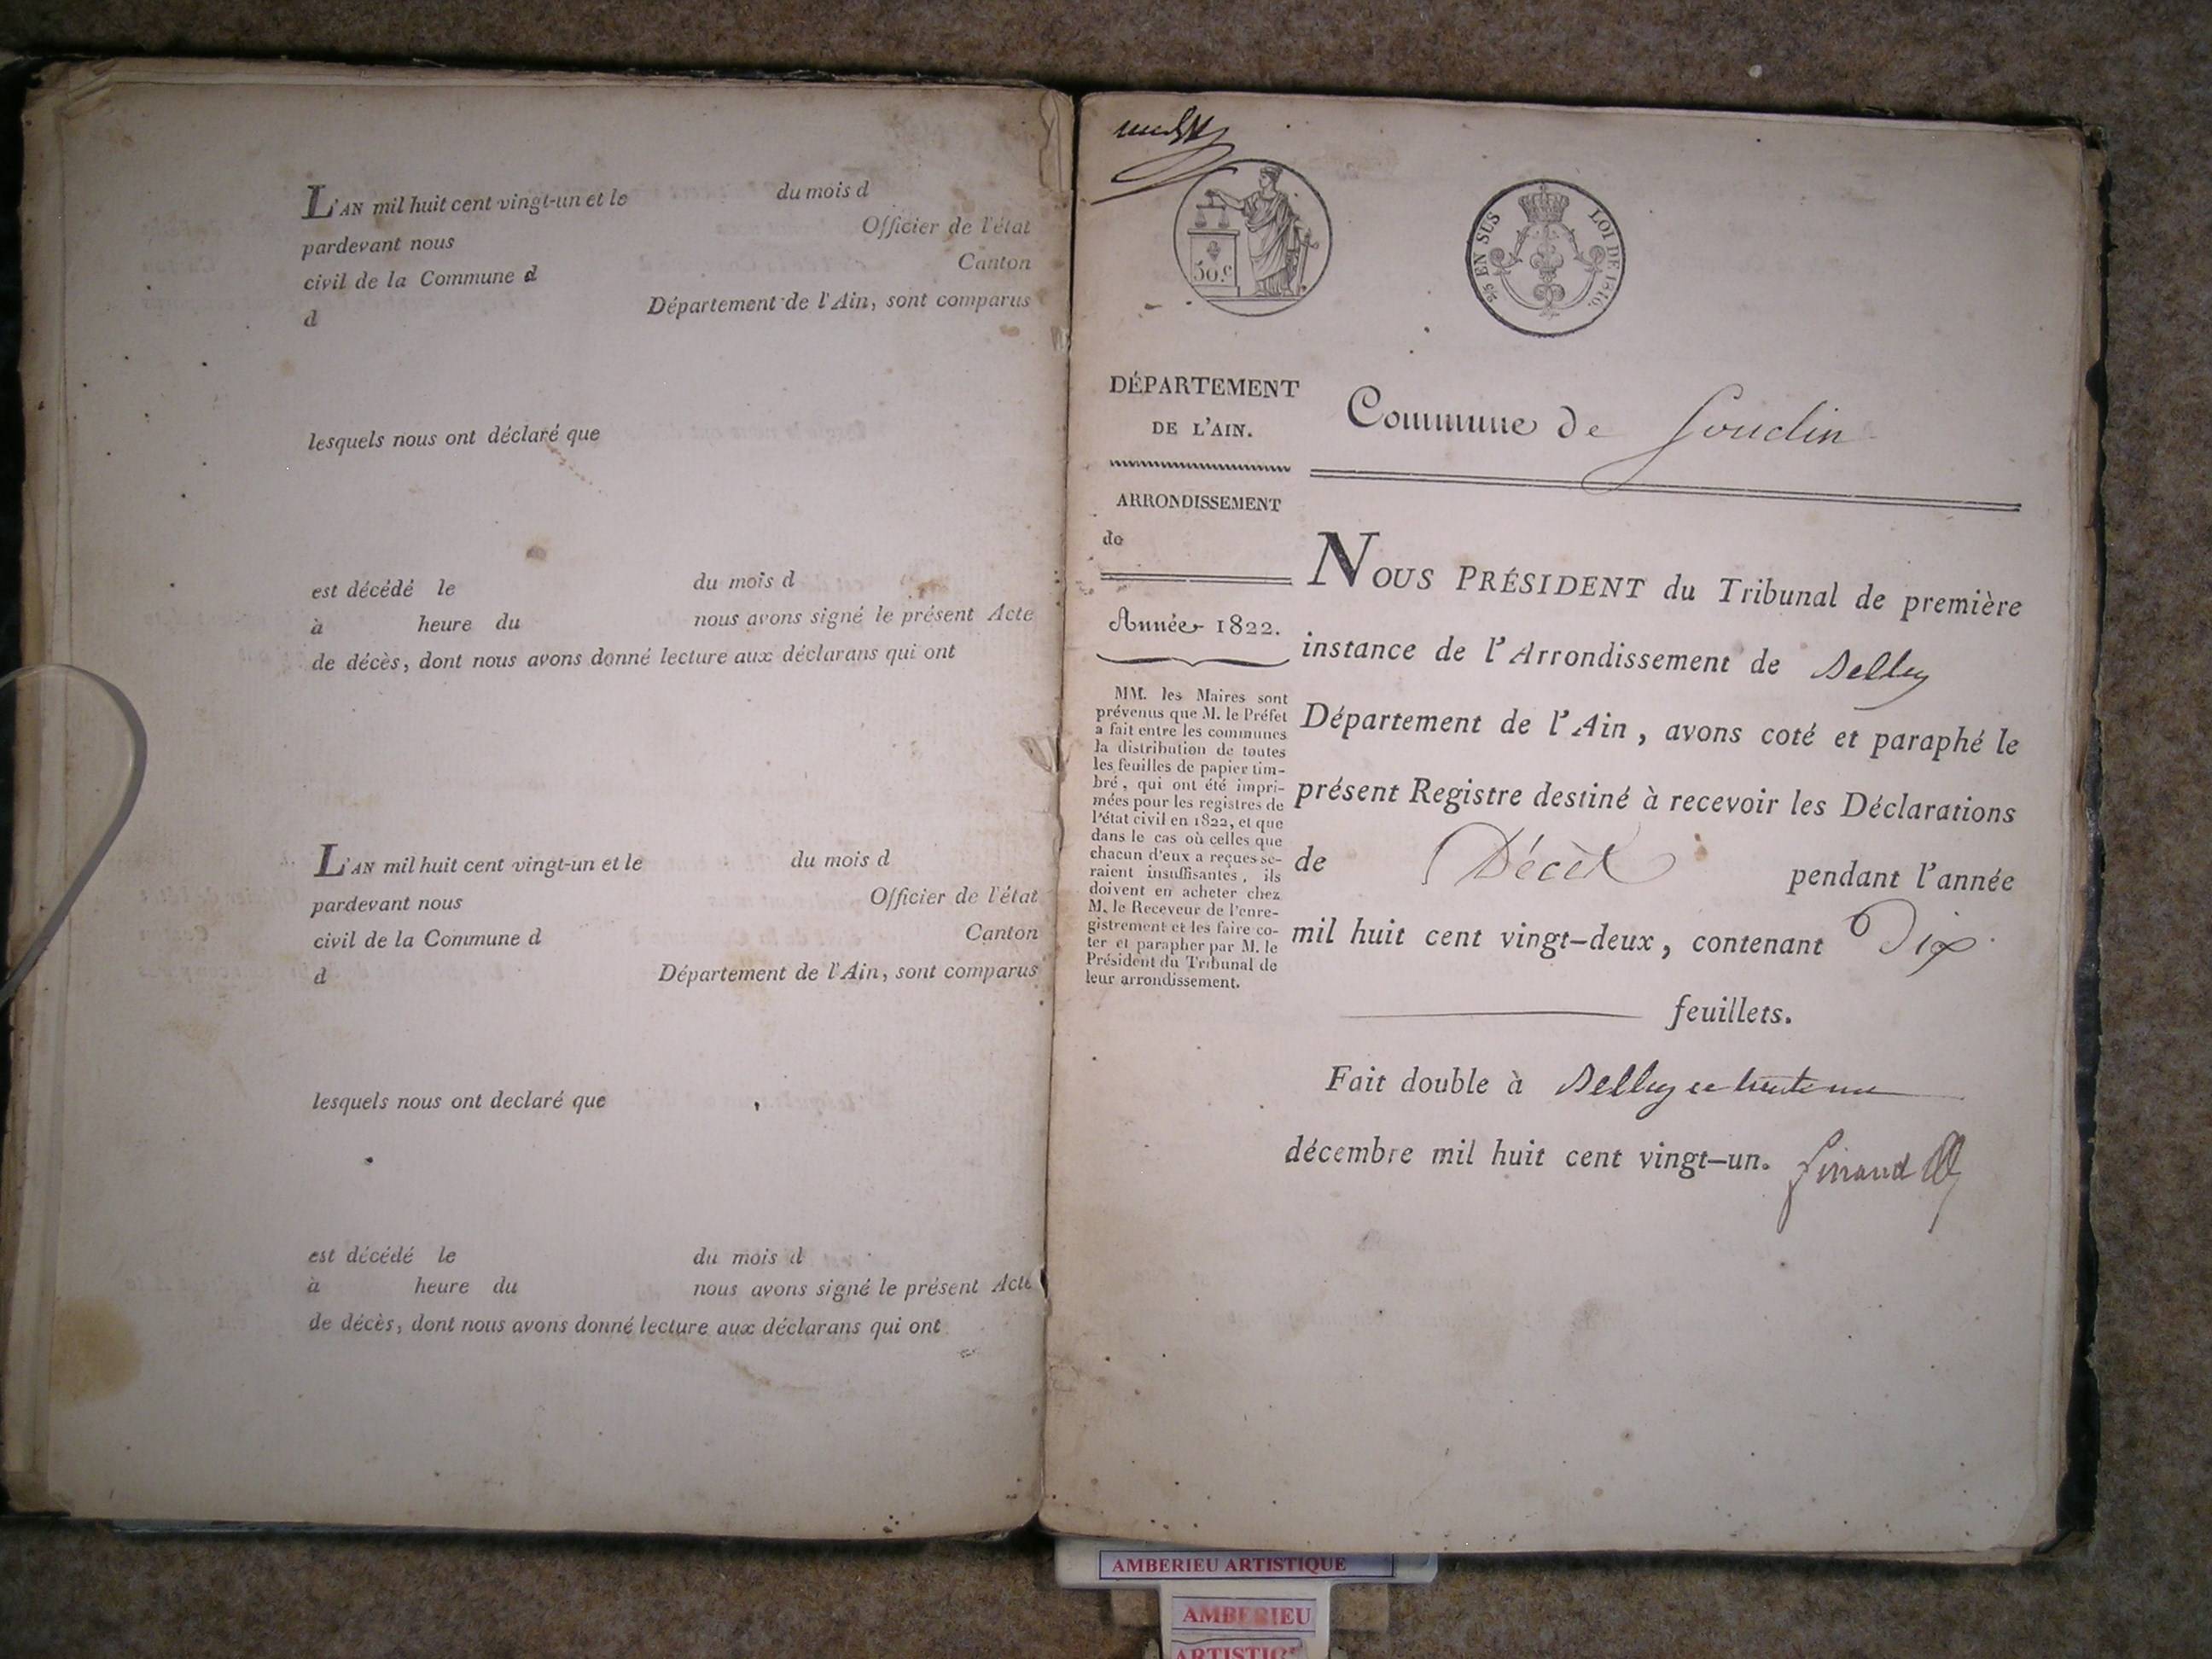 L'AN mil huit cent vingt-un et le du mois d
pardevant nous Officier de l'état
civil de la Commune d Canton
d Département de l'Ain, sont comparus
lesquels nous ont déclaré que
est décédé le du mois d
à heure du nous avons signé le présent Acte
de décès, dont nous avons donné lecture aux déclarans qui ont
L'AN mil huit cent vingt-un et le du mois d
pardevant nous Officier de l'état
civil de la Commune d Canton
d Département de l'Ain, sont comparus
lesquels nous ont declaré que
est décédé le du mois d
à heure du nous avons signé le présent Acte
de décès, dont nous avons donné lecture aux déclarans qui ont
50.c
25 EN SUS LOI DE 1816.
DÉPARTEMENT
DE L'AIN.
ARRONDISSEMENT
de
Année 1822.
MM. les Maires sont
prévenus que M. le Préfet
a fait entre les communes
la distribution de toutes
les feuilles de papier tim-
bré, qui ont été impri-
mées pour les registres de
l'état civil en 1822, et que
dans le cas où celles que
chacun d'eux a reçues se-
raient insuffisantes, ils
doivent en acheter chez
M. le Receveur de l'enre-
gistrement et les faire co-
ter et parapher par M. le
Président du Tribunal de
leur arrondissement.
Commune de Souclin
NOUS PRÉSIDENT du Tribunal de première
instance de l'Arrondissement de Belley
Département de l'Ain, avons coté et paraphé le
présent Registre destiné à recevoir les Déclarations
de Décès pendant l'année
mil huit cent vingt-deux, contenant Dix
feuillets.
Fait double à Belley ce trente un
décembre mil huit cent vingt-un.
AMBERIEU ARTISTIQUE
AMBERIEU
ARTISTIQ